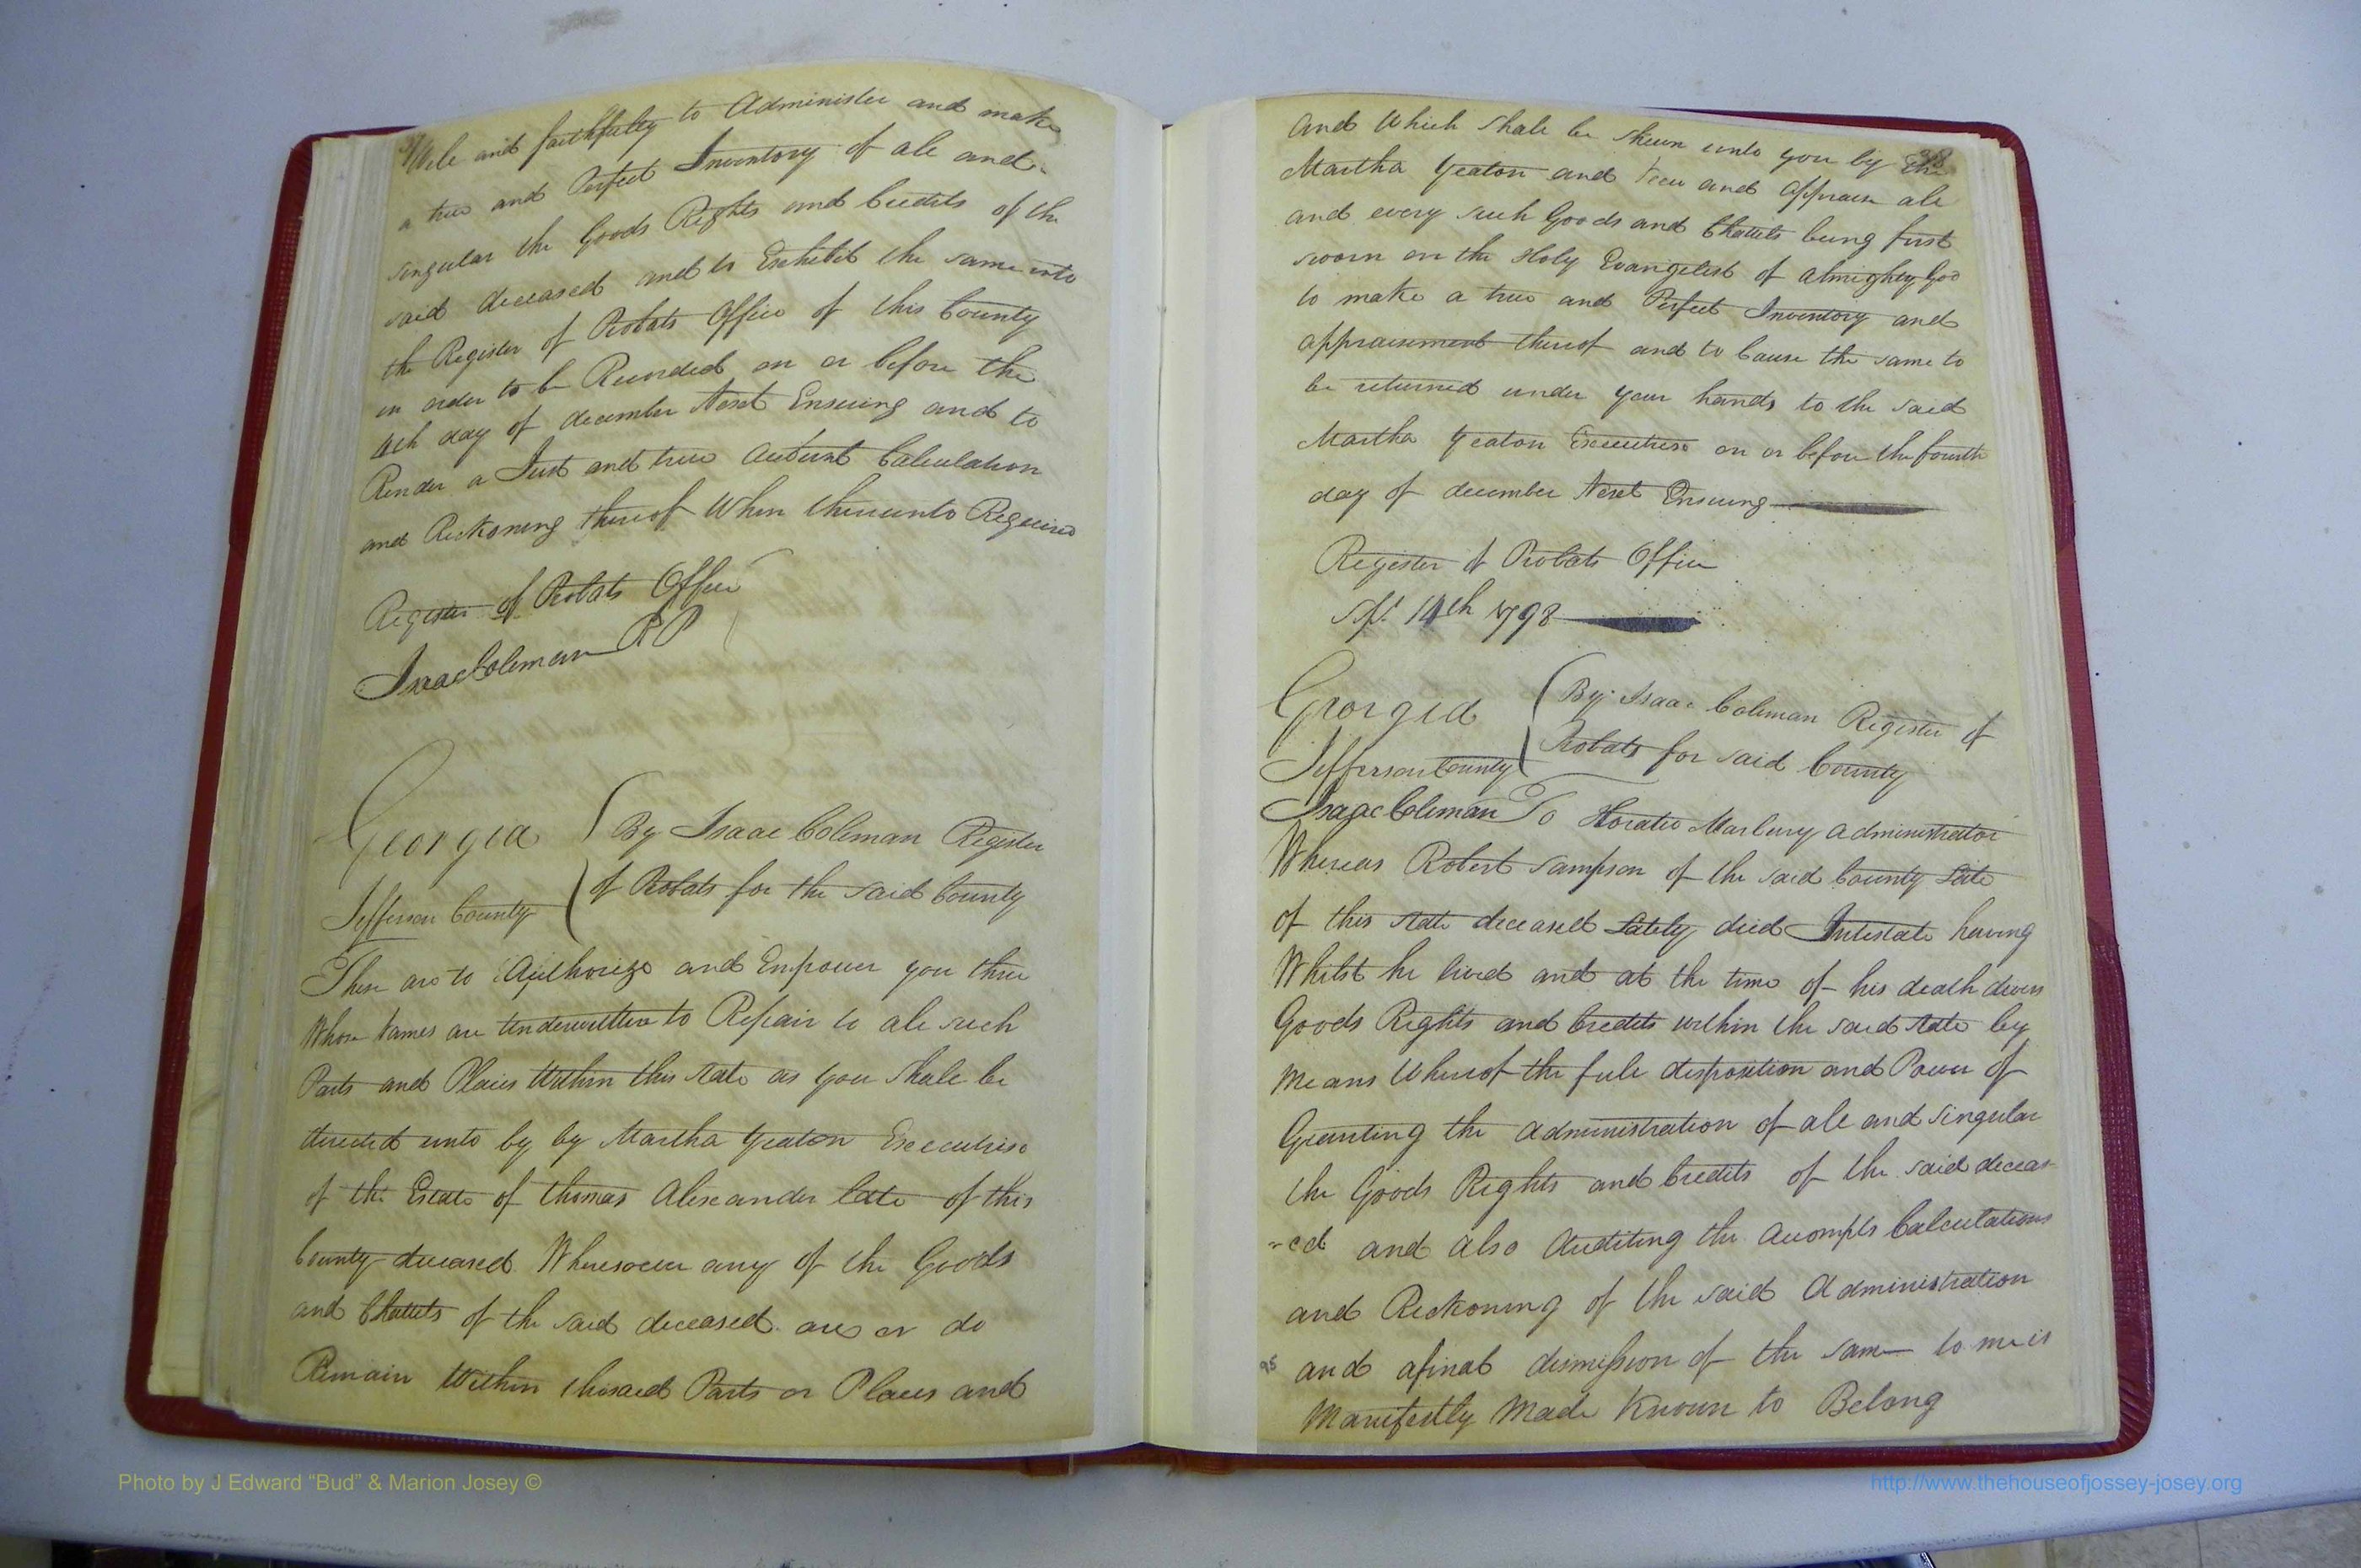 Well and faithfully to Administer and make
a true and Perfect Inventory of all and
singular the Goods Rights and Credits of the
said deceased and to Exhibit the same into
the Register of Probats Office of this County
in order to be Recorded on or before the
14th day of december Next Ensuing and to
Render a Just and true Account Calculation
and Reckoning thereof When thereunto Required
Register of Probats Office
Isaac Coleman RP
Georgia
By Isaac Coleman Register
of Probats for the said County
Jefferson County
These are to Authorize and Empower you three
Whose Names are Underwritten to Repair to all such
Parts and Places Within this State as you Shall be
directed unto by by Martha Yeaton Executrix
of the Estate of thomas Alexander late of this
County deceased Wheresoever any of the Goods
and Chattels of the said deceased are or do
Remain Within thesaid Parts or Places and
38
And Which Shall be Shewn unto you by the
Martha Yeaton and View and Appraise all
and every such Goods and Chattels being first
sworn on the Holy Evangelist of almighty God
to make a true and Perfect Inventory and
appraisement thereof and to Cause the same to
be returned under your hands to the said
Martha Yeaton Executrix on or before the fourth
day of december Next Ensuing
Register of Probats Office
Sept 14th 1798
Georgia
By Isaac Coleman Register of
Probats for said County
Jefferson County
Isaac Coleman To Horatio Marbury administrator
Whereas Robert Sampson of the said County Late
of this State deceased Lately died Intestate having
Whilst he lived and at the time of his death divers
Goods Rights and Credits within the said State by
Means Whereof the full disposition and Power of
Granting the administration of all and Singular
the Goods Rights and Credits of the said deceas
=ed and also Auditing the Accompts Calculations
and Reckoning of the said Administration
and afinal dismission of the same to me is
Manifestly Made Known to Belong
95
Photo by J Edward “Bud” & Marion Josey ©
http://www.thehouseofjossey-josey.org